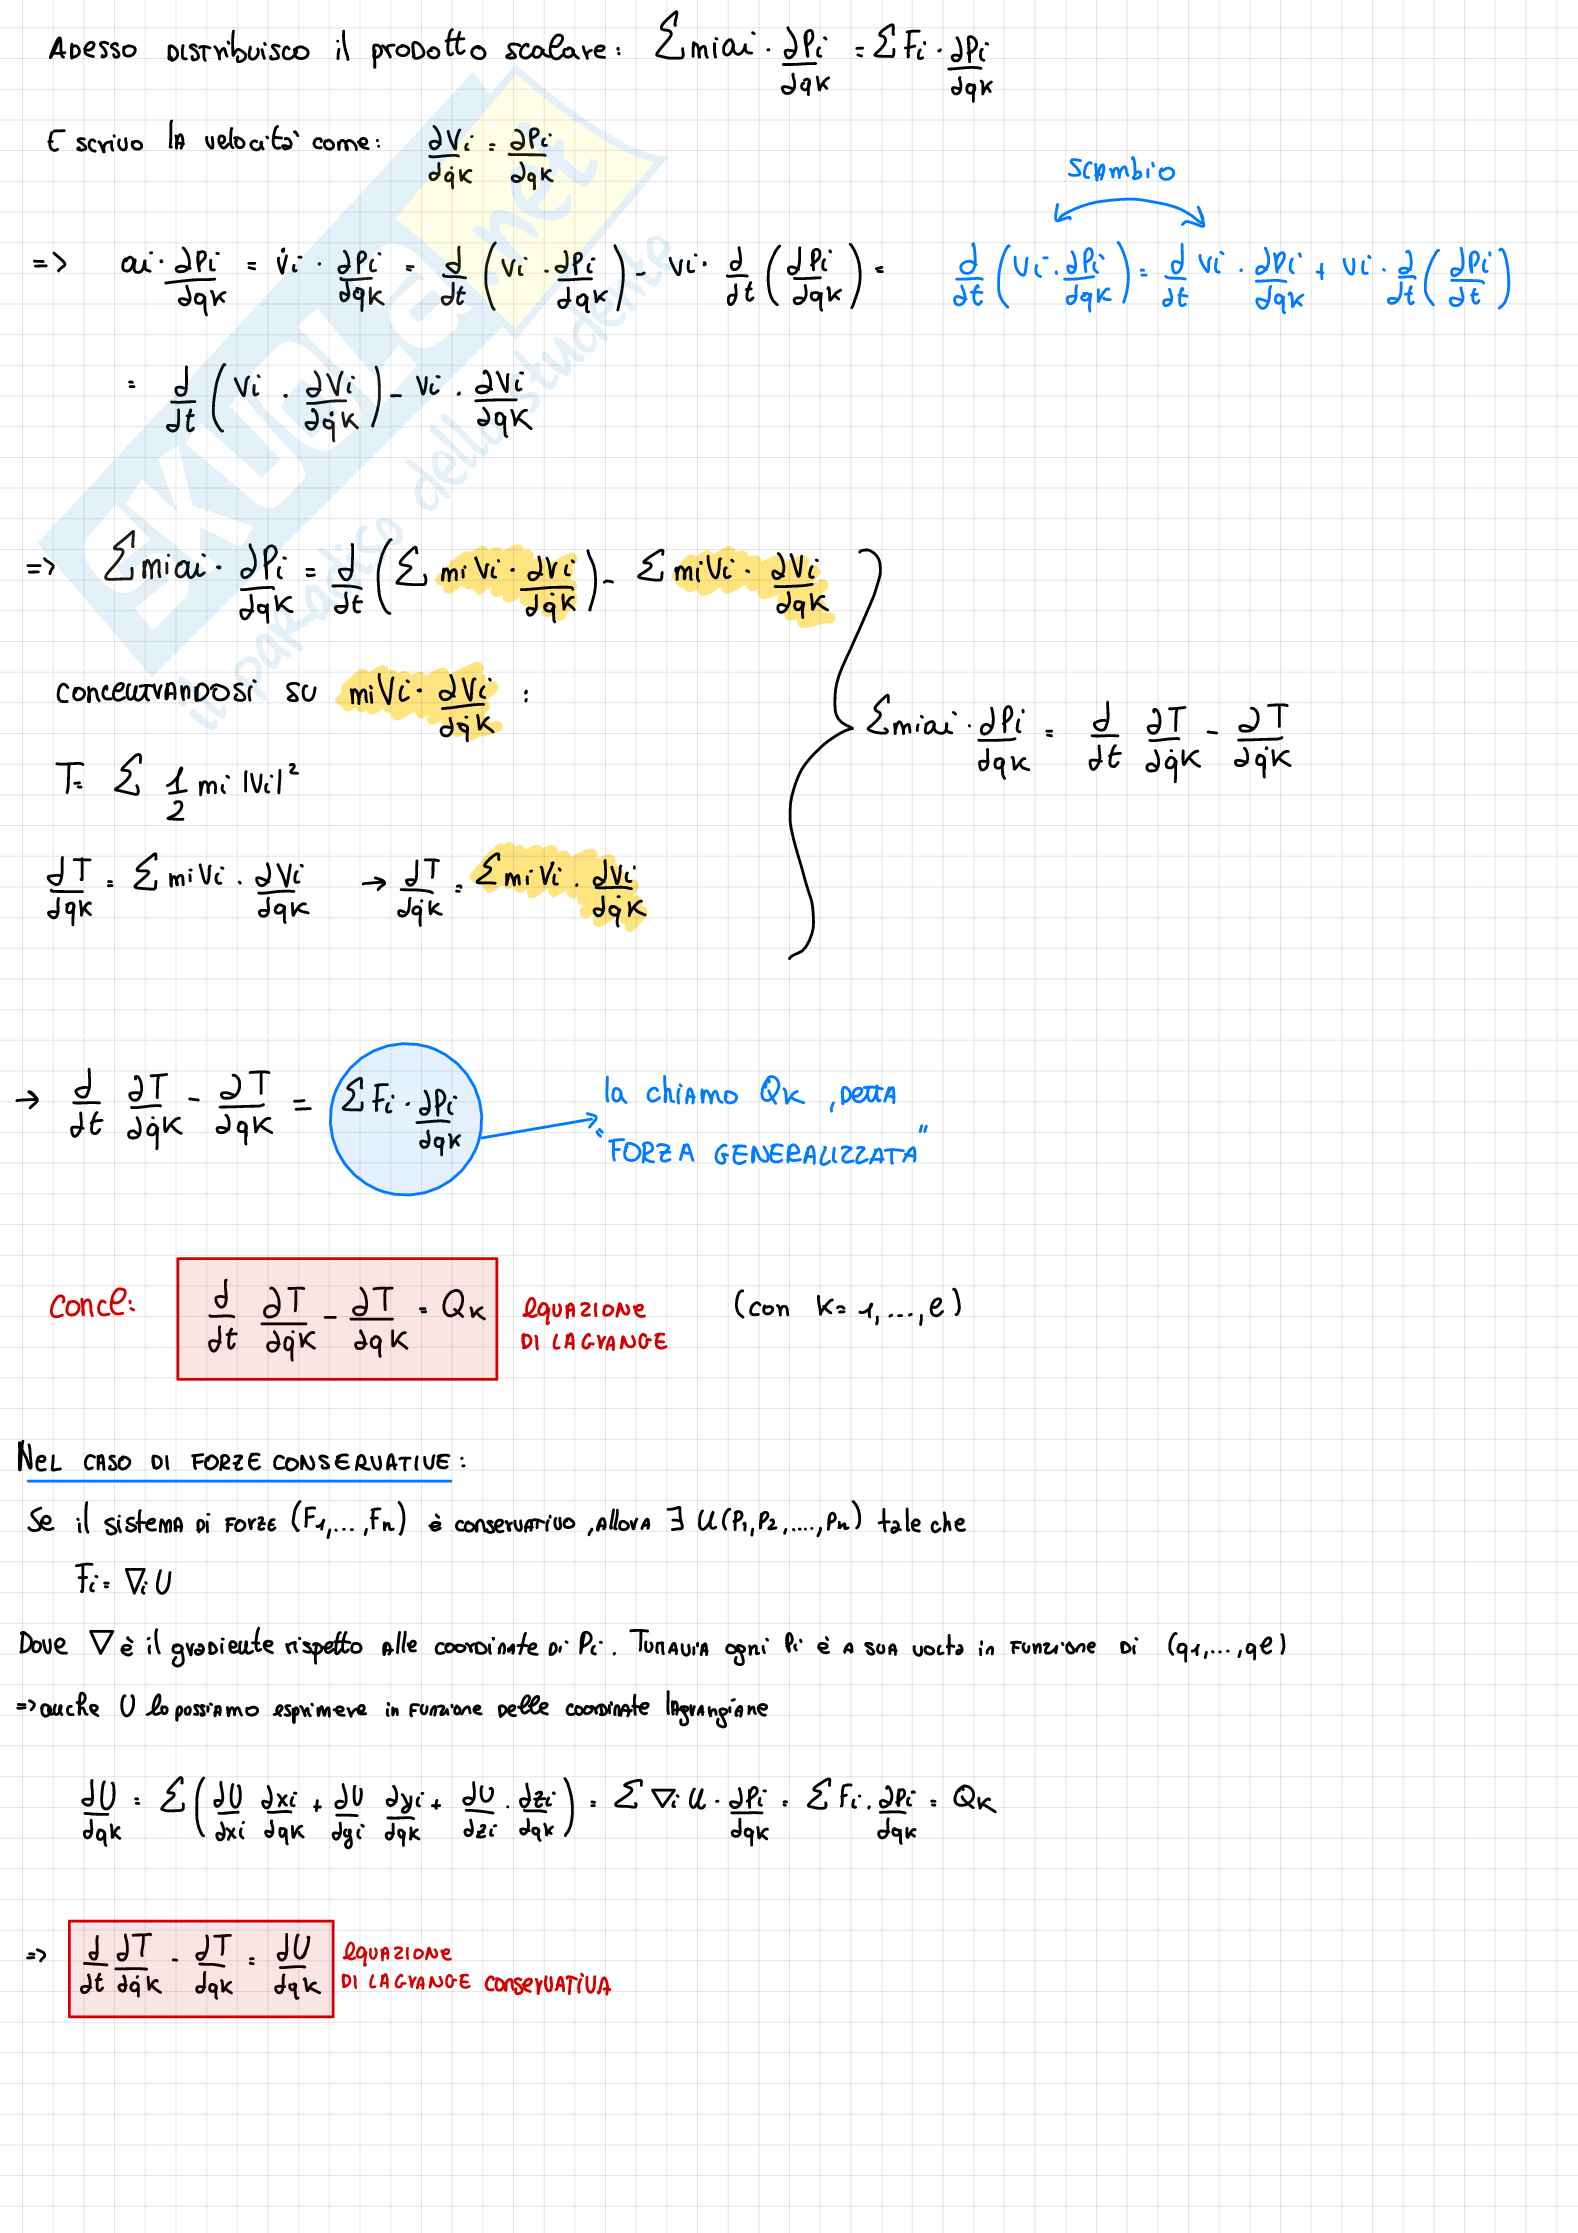 Adesso distribuisco il prodotto scalare: Σ miai · ∂Pi/∂qk = Σ Fi · ∂Pi/∂qk
E scrivo la velocità come: ∂Vi/∂q̇k = ∂Pi/∂qk
scambio
=> ai · ∂Pi/∂qk = v̇i · ∂Pi/∂qk = d/dt (vi · ∂Pi/∂qk) - vi · d/dt (∂Pi/∂qk) = d/dt (vi · ∂Pi/∂qk) = d/dt vi · ∂Pi/∂qk + vi · d/dt (∂Pi/∂t)
= d/dt (vi · ∂Vi/∂q̇k) - vi · ∂Vi/∂qk
=> Σ miai · ∂Pi/∂qk = d/dt (Σ mi Vi · ∂Vi/∂q̇k) - Σ miVi · ∂Vi/∂qk
concentrandosi su miVi · ∂Vi/∂q̇k :
Σ miai · ∂Pi/∂qk = d/dt ∂T/∂q̇k - ∂T/∂q̇k
T = Σ 1/2 mi |Vi|²
∂T/∂qk = Σ miVi · ∂Vi/∂qk → ∂T/∂q̇k = Σ miVi · ∂Vi/∂q̇k
→ d/dt ∂T/∂q̇k - ∂T/∂qk = Σ Fi · ∂Pi/∂qk
la chiamo Qk, detta
"FORZA GENERALIZZATA"
Concl: d/dt ∂T/∂q̇k - ∂T/∂qk = Qk equazione di Lagrange (con k = 1,...,l)
Nel caso di forze conservative:
Se il sistema di forze (F1,...,Fn) è conservativo, allora ∃ U(P1,P2,....,Pn) tale che
Fi = ∇i U
Dove ∇ è il gradiente rispetto alle coordinate di Pi. Tuttavia ogni Pi è a sua volta in funzione di (q1,...,ql)
=> anche U lo possiamo esprimere in funzione delle coordinate lagrangiane
∂U/∂qk = Σ (∂U/∂xi ∂xi/∂qk + ∂U/∂yi ∂yi/∂qk + ∂U/∂zi · ∂zi/∂qk) = Σ ∇i U · ∂Pi/∂qk = Σ Fi · ∂Pi/∂qk = Qk
=> d/dt ∂T/∂q̇k - ∂T/∂qk = ∂U/∂qk equazione di Lagrange conservativa
SKUOLA.net
il paradiso dello studente